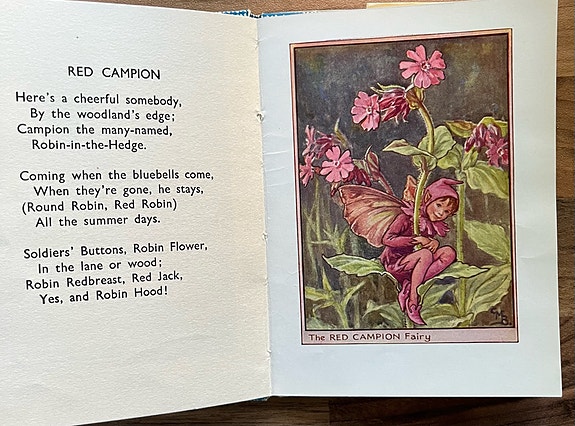 RED CAMPION
Here's a cheerful somebody,
By the woodland's edge;
Campion the many-named,
Robin-in-the-Hedge.
Coming when the bluebells come,
When they're gone, he stays,
(Round Robin, Red Robin)
All the summer days.
Soldiers' Buttons, Robin Flower,
In the lane or wood;
Robin Redbreast, Red Jack,
Yes, and Robin Hood!
CMB
The RED CAMPION Fairy